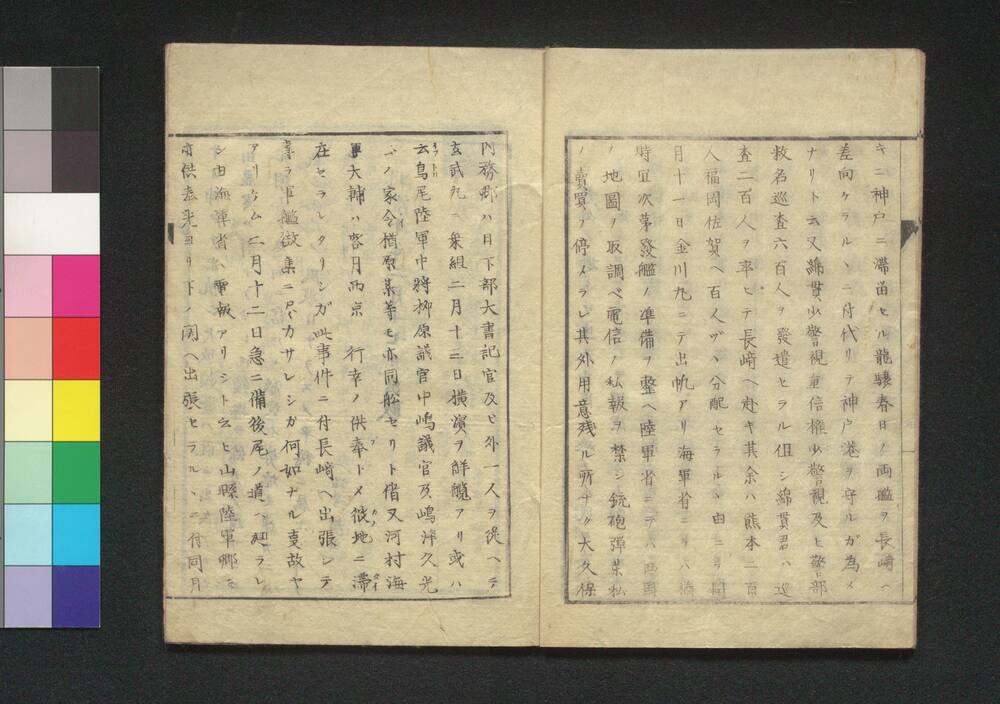 キニ神戸ニ滞畄セル龍驤春日ノ両艦ヲ長﨑ヘ
差向ケラルヽニ付代リテ神戸港ヲ守ルガ為メ
ナリト云又綿貫少警視重信権少警視及ヒ警部
数名巡査六百人ヲ發遣セラル但シ綿貫君ハ巡
査二百人ヲ率ヒテ長﨑ヘ赴キ其余ハ熊本二百
人福岡佐賀ヘ百人ヅヽ分配セラルヽ由ニテ同
月十一日金川丸ニテ出帆アリ海軍省ニテハ
時宜次第發艦ノ準備ヲ整ヘ陸軍省ニテハ西国
ノ地圖ヲ取調ベ電信ノ私報ヲ禁シ銃砲弾薬私
ノ賣買ヲ停メラレ其外用意残ル所ナク大久保
内務卿ハ日下部大書記官及ビ外一人ヲ従ヘテ
玄武丸ニ乗組二月十三日横濱ヲ解纜アリ或ハ
云鳥尾陸軍中将柳原議官中嶋議官及嶋津久光
ノ家令楢原某等モ亦同船セリト偖又河村海
軍大輔ハ客月西京行幸ノ供奉ドメ彼地ニ滞
在セラレタリシガ此事件ニ付長﨑ヘ出張シテ
軍艦ヲ集ニ尽力サレシカ何如ナル事故ヤ
アリケム二月十二日急ニ備後尾ノ道ヘ廻ラレ
シ由海軍省ヘ電報アリシト云ヒ山縣陸軍卿モ
亦供奉先ヨリ下ノ関ヘ出張セラルヽニ付同月